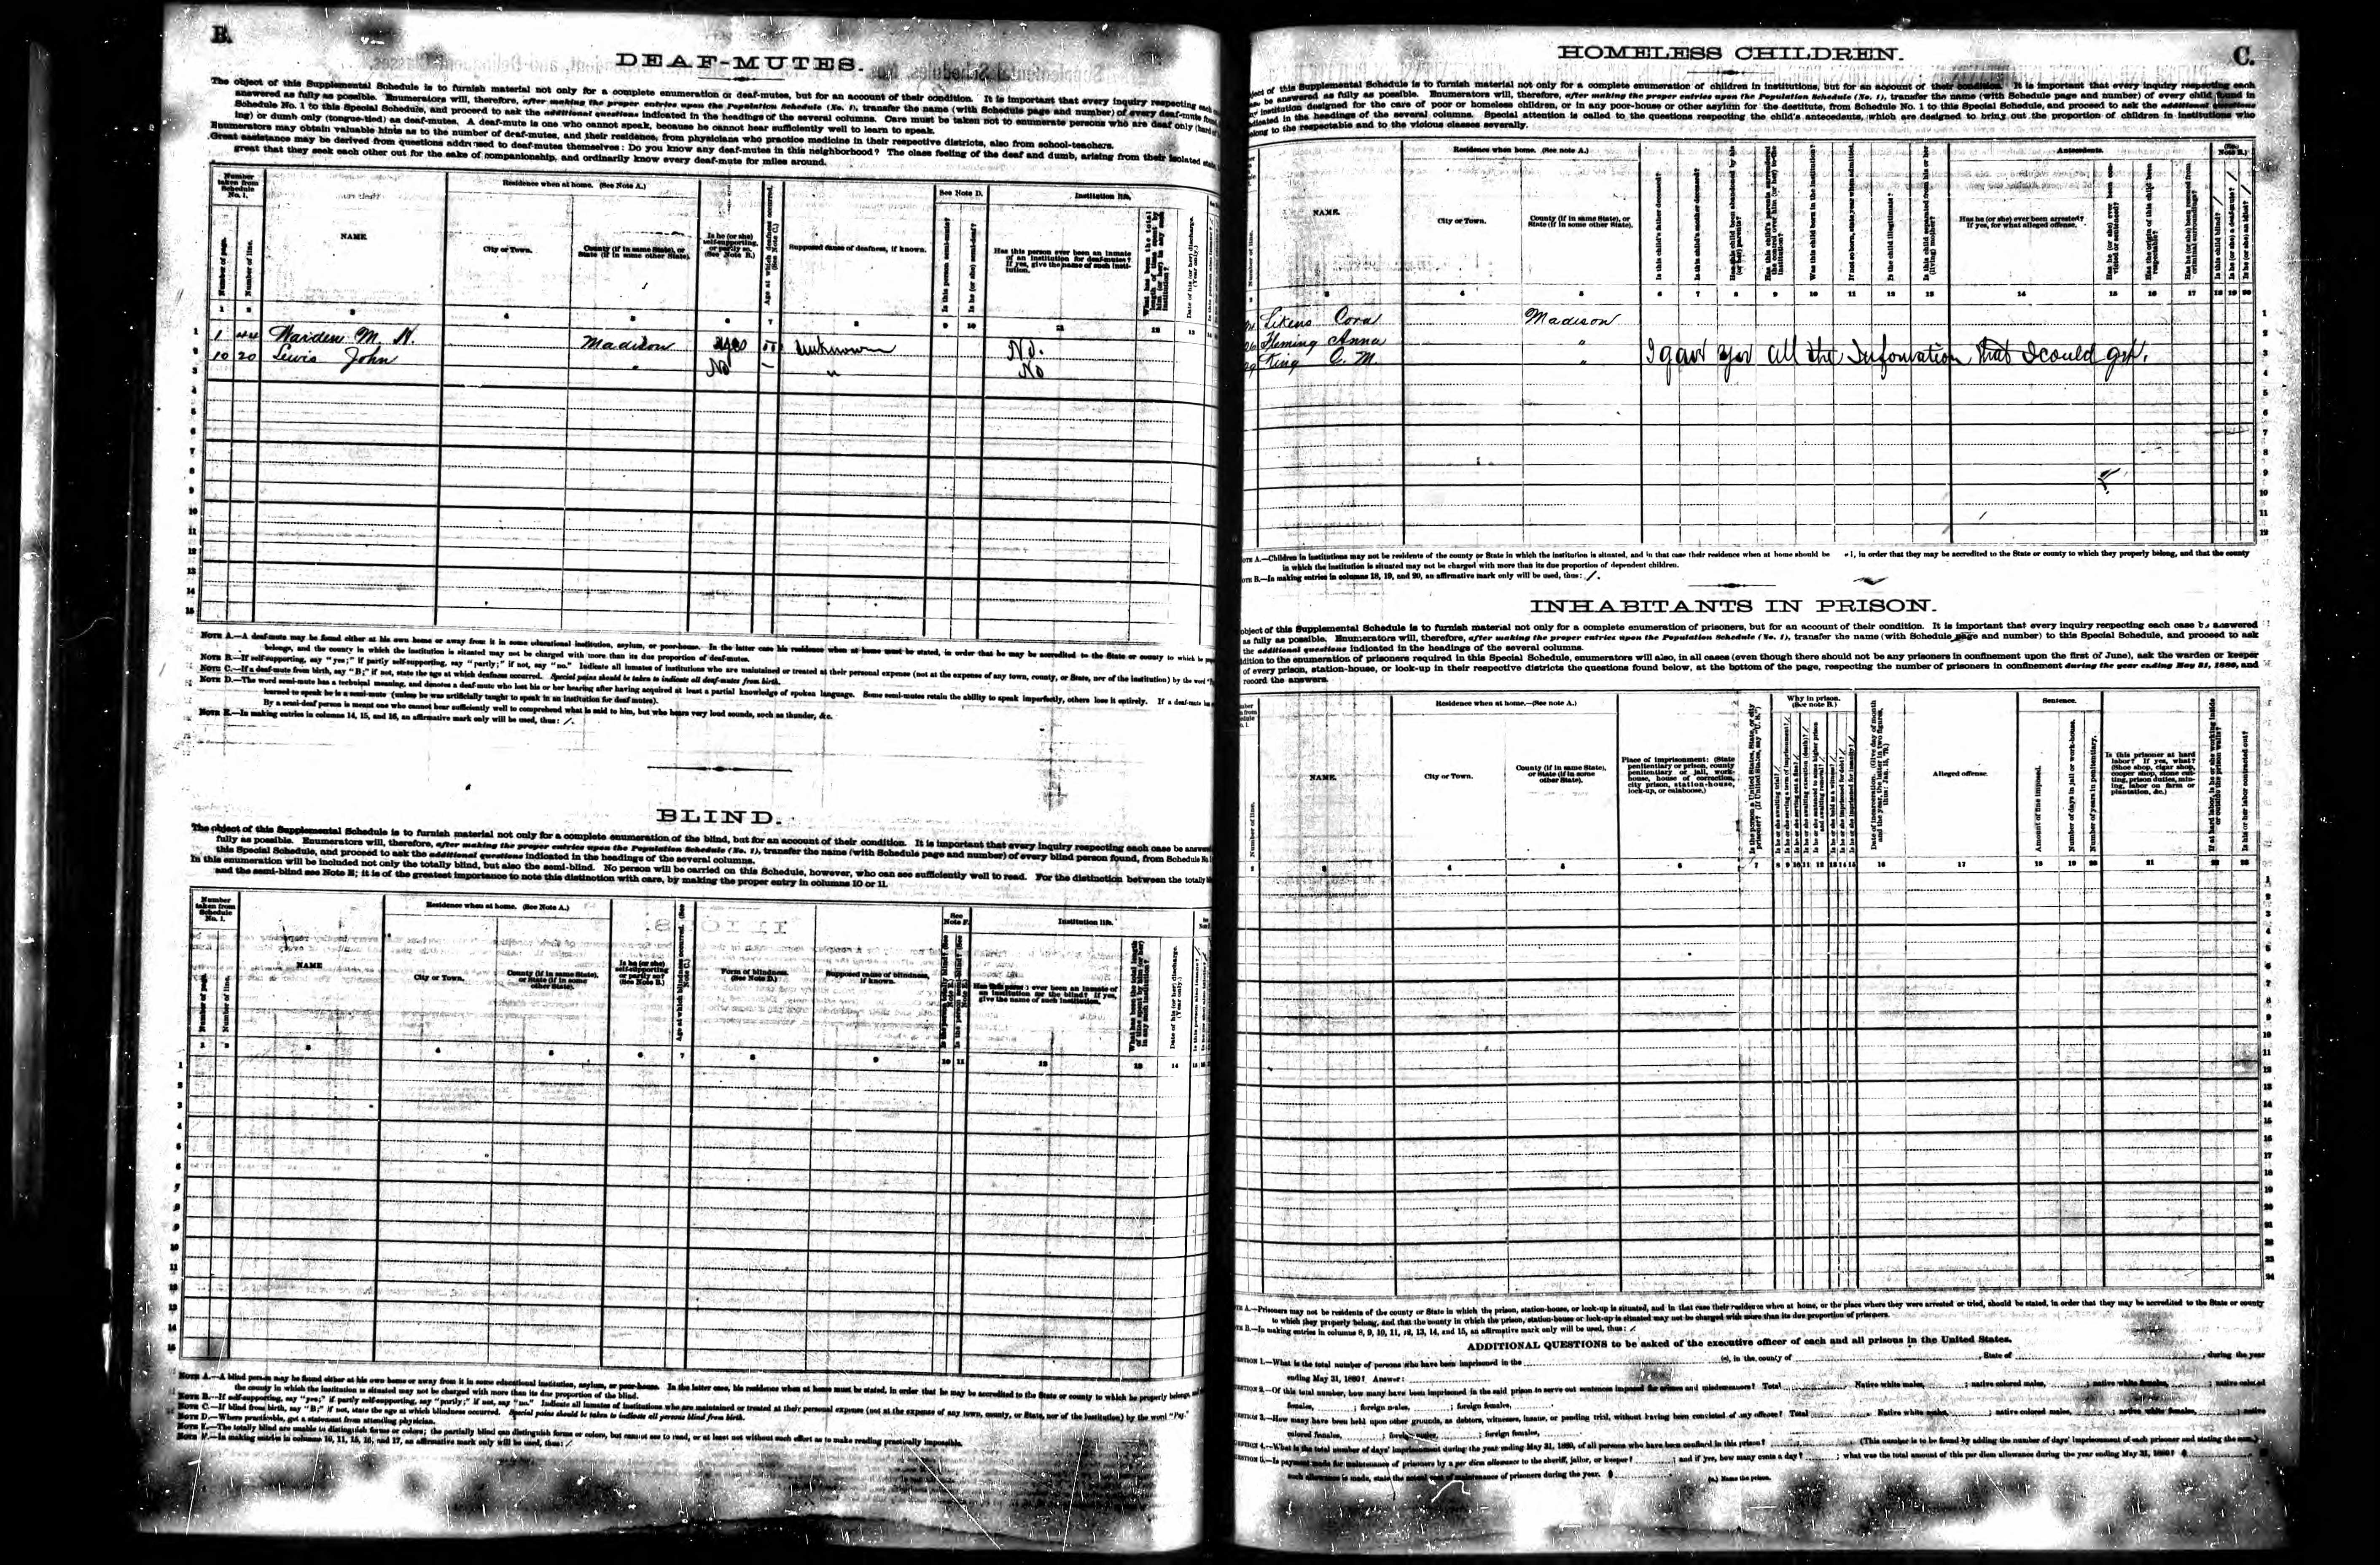 B.
DEAF-MUTES.
The object of this Supplemental Schedule is to furnish material not only for a complete enumeration of deaf-mutes, but for an account of their condition. It is important that every inquiry respecting each
answered as fully as possible. Enumerators will, therefore, after making the proper entries upon the Population Schedule (No. 1), transfer the name (with Schedule page and number) of every deaf-mute found,
Schedule No. 1 to this Special Schedule, and proceed to ask the additional questions indicated in the headings of the several columns. Care must be taken not to enumerate persons who are deaf only (hard of
ing) or dumb only (tongue-tied) as deaf-mutes. A deaf-mute is one who cannot speak, because he cannot hear sufficiently well to learn to speak.
Enumerators may obtain valuable hints as to the number of deaf-mutes, and their residence, from physicians who practice medicine in their respective districts, also from school-teachers.
Great assistance may be derived from questions addressed to deaf-mutes themselves: Do you know any deaf-mutes in this neighborhood? The class feeling of the deaf and dumb, arising from their isolated
great that they seek each other out for the sake of companionship, and ordinarily know every deaf-mute for miles around.
Number taken from Schedule No. 1.
Number of page.
Number of line.
NAME.
Residence when at home. (See Note A.)
City or Town.
County (if in same State), or State (if in some other State).
Is he (or she) self-supporting, or partly so? (See Note B.)
Age at which deafness occurred. (See Note C.)
Supposed cause of deafness, if known.
See Note D.
Is this person semi-mute?
Is he (or she) semi-deaf?
Institution life.
Has this person ever been an inmate of an institution for deaf-mutes? If yes, give the name of such institution.
What has been the total length of time spent by him (or her) in any such institution?
Date of his (or her) discharge. (Year only.)
1 Warden M. H. Madison unknown No.
10 20 Lewis John " No " No
NOTE A.—A deaf-mute may be found either at his own home or away from it in some educational institution, asylum, or poor-house. In the latter case his residence when at home must be stated, in order that he may be accredited to the State or county to which he
belongs, and the county in which the institution is situated may not be charged with more than its due proportion of deaf-mutes.
NOTE B.—If self-supporting, say "yes;" if partly self-supporting, say "partly;" if not, say "no." Indicate all inmates of institutions who are maintained or treated at their personal expense (not at the expense of any town, county, or State, nor of the institution) by the word
NOTE C.—If a deaf-mute from birth, say "B;" if not, state the age at which deafness occurred. Special pains should be taken to indicate all deaf-mutes from birth.
NOTE D.—The word semi-mute has a technical meaning, and denotes a deaf-mute who lost his or her hearing after having acquired at least a partial knowledge of spoken language. Some semi-mutes retain the ability to speak imperfectly, others lose it entirely. If a deaf-mute has
learned to speak he is a semi-mute (unless he was artificially taught to speak in an institution for deaf mutes).
By a semi-deaf person is meant one who cannot hear sufficiently well to comprehend what is said to him, but who hears very loud sounds, such as thunder, &c.
NOTE E.—In making entries in columns 14, 15, and 16, an affirmative mark only will be used, thus: /.
BLIND.
The object of this Supplemental Schedule is to furnish material not only for a complete enumeration of the blind, but for an account of their condition. It is important that every inquiry respecting each case be answered
fully as possible. Enumerators will, therefore, after making the proper entries upon the Population Schedule (No. 1), transfer the name (with Schedule page and number) of every blind person found, from Schedule No. 1
this Special Schedule, and proceed to ask the additional questions indicated in the headings of the several columns.
In this enumeration will be included not only the totally blind, but also the semi-blind. No person will be carried on this Schedule, however, who can see sufficiently well to read. For the distinction between the totally
and the semi-blind see Note E; it is of the greatest importance to note this distinction with care, by making the proper entry in columns 10 or 11.
Number taken from Schedule No. 1.
Number of page.
Number of line.
NAME
Residence when at home. (See Note A.)
City or Town.
County (if in same State), or State (if in some other State).
Is he (or she) self-supporting or partly so? (See Note B.)
Age at which blindness occurred. (See Note C.)
Form of blindness. (See Note D.)
Supposed cause of blindness, if known.
See Note F.
Institution life.
Has this person ever been an inmate of an institution for the blind? If yes, give the name of such institution.
What has been the total length of time spent by him (or her) in any such institution?
Date of his (or her) discharge. (Year only.)
NOTE A.—A blind person may be found either at his own home or away from it in some educational institution, asylum, or poor-house. In the latter case, his residence when at home must be stated, in order that he may be accredited to the State or county to which he properly belongs, and
the county in which the institution is situated may not be charged with more than its due proportion of the blind.
NOTE B.—If self-supporting, say "yes;" if partly self-supporting, say "partly;" if not, say "no." Indicate all inmates of institutions who are maintained or treated at their personal expense (not at the expense of any town, county, or State, nor of the institution) by the word "Pay."
NOTE C.—If blind from birth, say "B;" if not, state the age at which blindness occurred. Special pains should be taken to indicate all persons blind from birth.
NOTE D.—Where practicable, get a statement from attending physician.
NOTE E.—The totally blind are unable to distinguish forms or colors; the partially blind can distinguish forms or colors, but cannot see to read, or at least not without such effort as to make reading practically impossible.
NOTE F.—In making entries in columns 10, 11, 15, 16, and 17, an affirmative mark only will be used, thus: /
HOMELESS CHILDREN.
C.
object of this Supplemental Schedule is to furnish material not only for a complete enumeration of children in institutions, but for an account of their condition. It is important that every inquiry respecting each
be answered as fully as possible. Enumerators will, therefore, after making the proper entries upon the Population Schedule (No. 1), transfer the name (with Schedule page and number) of every child found in
institution designed for the care of poor or homeless children, or in any poor-house or other asylum for the destitute, from Schedule No. 1 to this Special Schedule, and proceed to ask the additional questions
indicated in the headings of the several columns. Special attention is called to the questions respecting the child's antecedents, which are designed to bring out the proportion of children in institutions who
belong to the respectable and to the vicious classes severally.
Number of line.
NAME.
Residence when home. (See note A.)
City or Town.
County (if in same State), or State (if in some other State).
Is this child's father deceased?
Is this child's mother deceased?
Has this child been abandoned by his (or her) parents?
Has this child's parents surrendered the control over him (or her) to the institution?
Was this child born in the institution?
If not so born, state year when admitted.
Is the child illegitimate?
Is this child separated from his or her (living) mother?
Antecedents.
Has he (or she) ever been arrested? If yes, for what alleged offense.
Has he (or she) ever been convicted or sentenced?
Has the origin of this child been respectable?
Has he (or she) been rescued from criminal surroundings?
(See Note B.)
Is this child blind?
Is he (or she) a deaf-mute?
Is he (or she) an idiot?
Likens Cora Madison
Fleming Anna "
King C. M. " I gave you all the Information that I could get.
NOTE A.—Children in institutions may not be residents of the county or State in which the institution is situated, and in that case their residence when at home should be , in order that they may be accredited to the State or county to which they properly belong, and that the county
in which the institution is situated may not be charged with more than its due proportion of dependent children.
NOTE B.—In making entries in columns 18, 19, and 20, an affirmative mark only will be used, thus: /.
INHABITANTS IN PRISON.
object of this Supplemental Schedule is to furnish material not only for a complete enumeration of prisoners, but for an account of their condition. It is important that every inquiry respecting each case be answered
as fully as possible. Enumerators will, therefore, after making the proper entries upon the Population Schedule (No. 1), transfer the name (with Schedule page and number) to this Special Schedule, and proceed to ask
the additional questions indicated in the headings of the several columns.
dition to the enumeration of prisoners required in this Special Schedule, enumerators will also, in all cases (even though there should not be any prisoners in confinement upon the first of June), ask the warden or keeper
of every prison, station-house, or look-up in their respective districts the questions found below, at the bottom of the page, respecting the number of prisoners in confinement during the year ending May 31, 1880, and
record the answers.
Number of line.
NAME.
Residence when at home.—(See note A.)
City or Town.
County (if in same State), or State (if in some other State).
Place of imprisonment: (State penitentiary or prison, county penitentiary or jail, work-house, house of correction, city prison, station-house, lock-up, or calaboose.)
Is the person a United States, State, or city prisoner? (If United States, say "U. S.")
Why in prison. (See note B.)
Is he or she awaiting trial?
Is he or she serving a term of imprisonment?
Is he or she serving out a fine?
Is he or she awaiting execution (death)?
Is he or she sentenced to some higher prison and awaiting removal?
Is he or she held as a witness?
Is he or she imprisoned for debt?
Is he or she imprisoned for insanity?
Date of incarceration. (Give day of month and the year, the latter in two figures, thus: Jan. 15, 79.)
Alleged offense.
Sentence.
Amount of fine imposed.
Number of days in jail or work-house.
Number of years in penitentiary.
Is this prisoner at hard labor? If yes, what? (Shoe shop, cigar shop, cooper shop, stone cutting, prison duties, mining, labor on farm or plantation, &c.)
If at hard labor, is he or she working inside or outside the prison walls?
Is his or her labor contracted out?
NOTE A.—Prisoners may not be residents of the county or State in which the prison, station-house, or lock-up is situated, and in that case their residence when at home, or the place where they were arrested or tried, should be stated, in order that they may be accredited to the State or county
to which they properly belong, and that the county in which the prison, station-house or lock-up is situated may not be charged with more than its due proportion of prisoners.
NOTE B.—In making entries in columns 8, 9, 10, 11, 12, 13, 14, and 15, an affirmative mark only will be used, thus: /
ADDITIONAL QUESTIONS to be asked of the executive officer of each and all prisons in the United States.
QUESTION 1.—What is the total number of persons who have been imprisoned in the (a), in the county of , State of , during the year
ending May 31, 1880? Answer:
QUESTION 2.—Of this total number, how many have been imprisoned in the said prison to serve out sentences imposed for crimes and misdemeanors? Total Native white males, ; native colored males, ; native white females, ; native colored
females, ; foreign males, ; foreign females,
QUESTION 3.—How many have been held upon other grounds, as debtors, witnesses, insane, or pending trial, without having been convicted of any offense? Total Native white males, ; native colored males, ; native white females, ; native
colored females, ; foreign males, ; foreign females,
QUESTION 4.—What is the total number of days' imprisonment during the year ending May 31, 1880, of all persons who have been confined in this prison? (This number is to be found by adding the number of days' imprisonment of each prisoner and stating the sum.)
QUESTION 5.—Is payment made for maintenance of prisoners by a per diem allowance to the sheriff, jailor, or keeper? ; and if yes, how many cents a day? ; what was the total amount of this per diem allowance during the year ending May 31, 1880? $
such allowance is made, state the actual cost of maintenance of prisoners during the year. $ (a.) Name the prison.